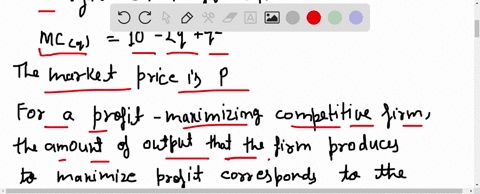 MC(q) = 10 - 2q + q²
The market price is P
For a profit - maximizing competitive firm,
the amount of output that the firm produces
to maximize profit corresponds to the